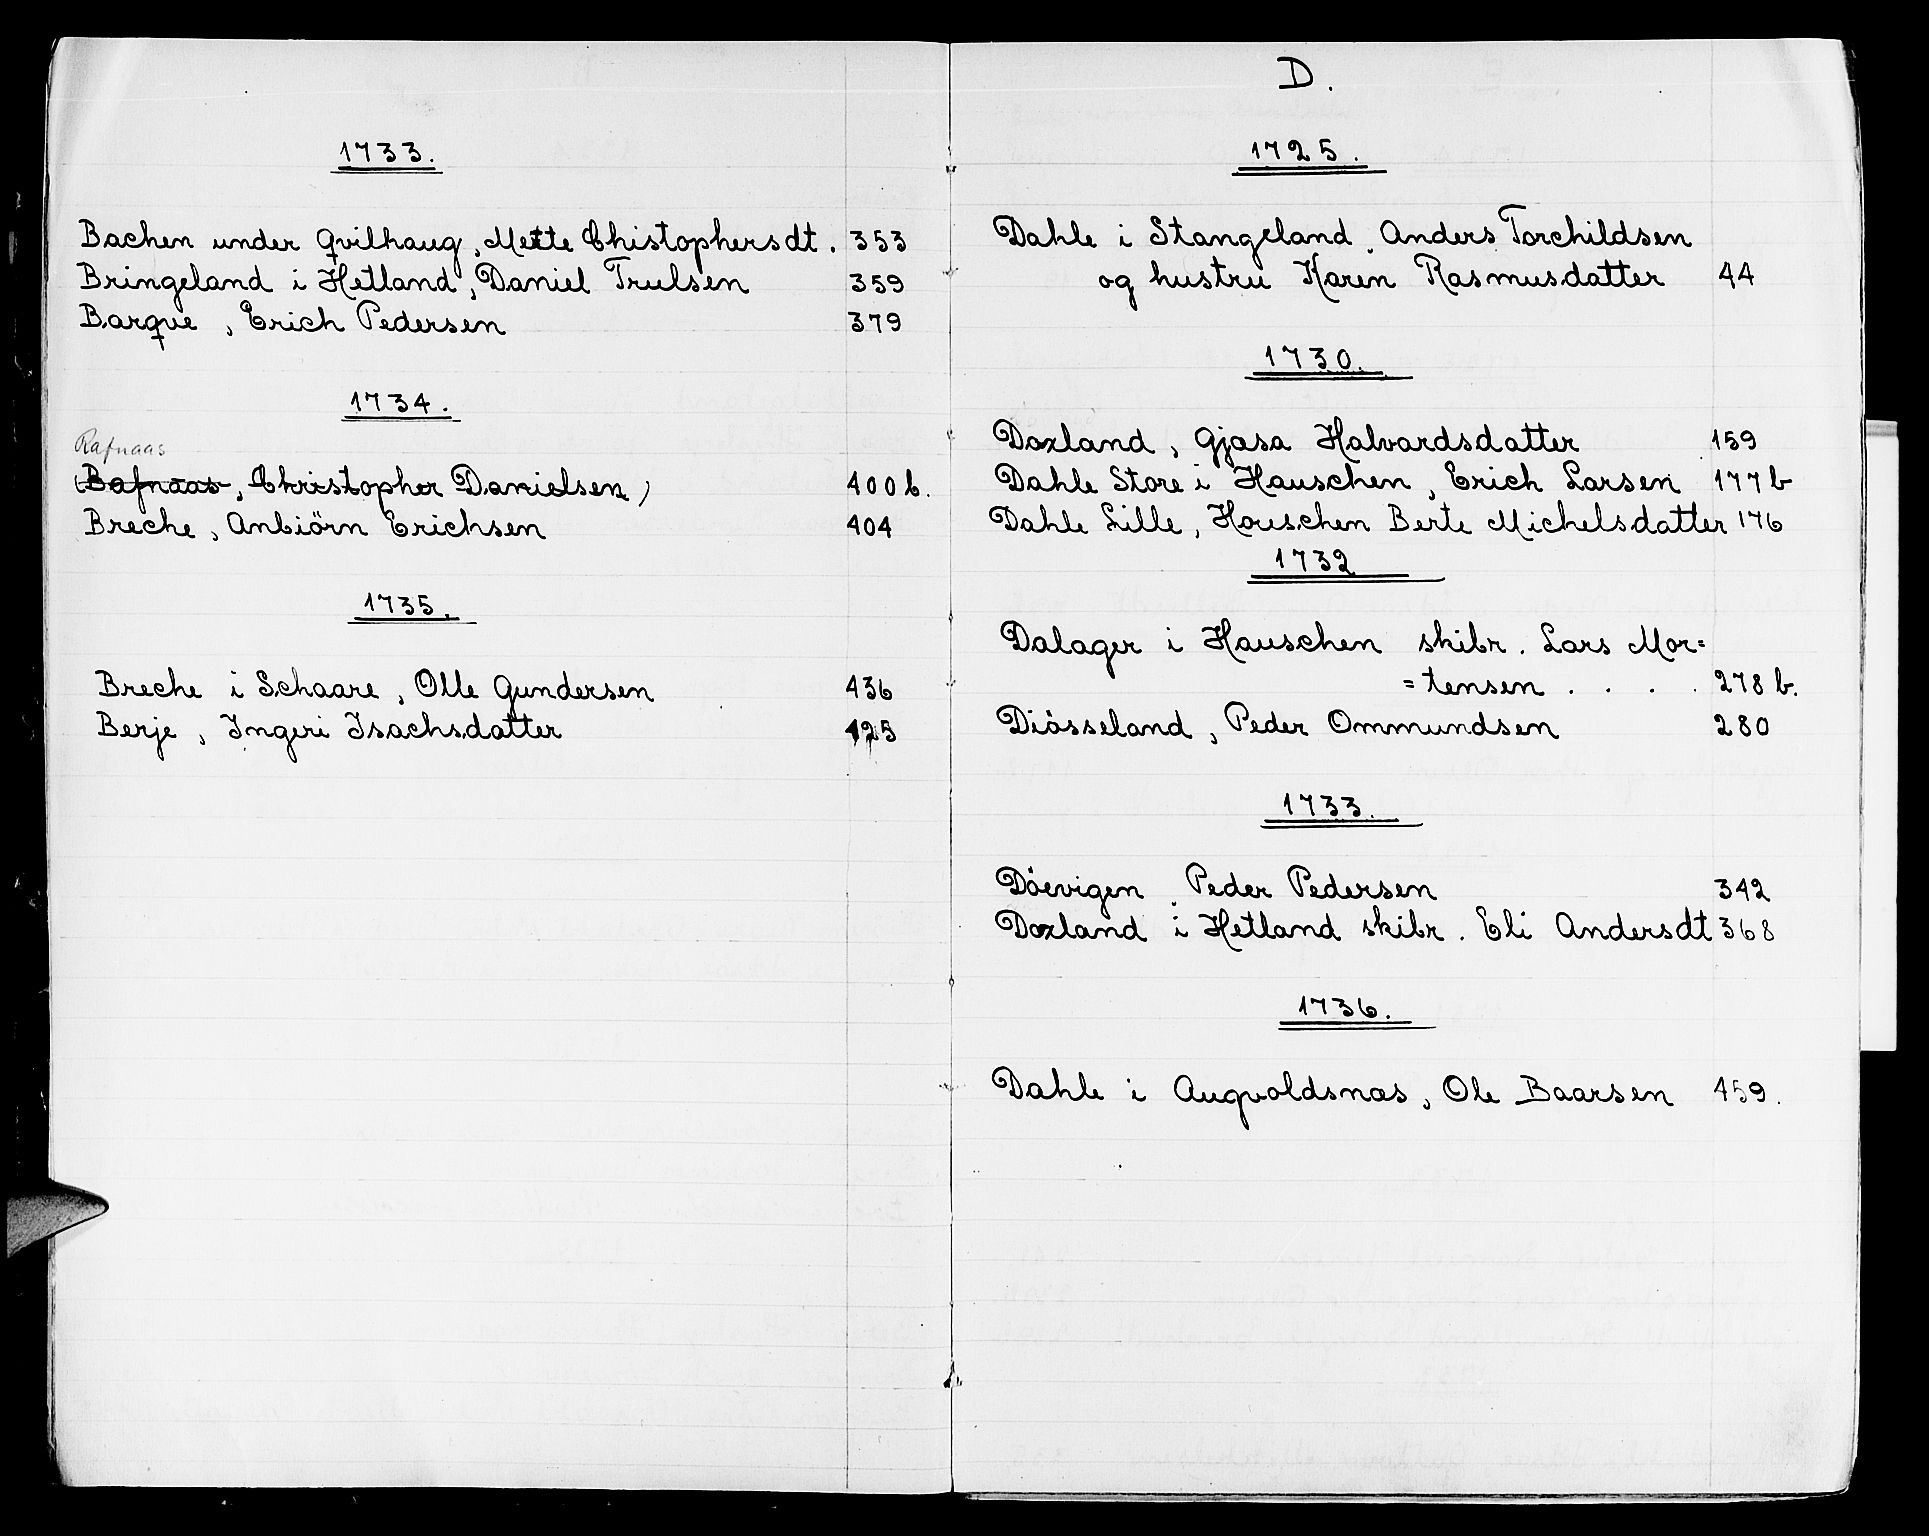 1733.
Bachen under Qvilhaug, Mette Chistophersdt. 353
Bringeland i Hetland, Daniel Trulsen 359
Barque, Erich Pedersen 379
1734.
Rafnaas
(Bafnaas, Christopher Danielsen) 400 b.
Breche, Anbiörn Erichsen 404
1735.
Breche i Schaare, Olle Gundersen 436
Berje, Ingeri Isachsdatter 425
D.
1725.
Dahle i Stangeland, Anders Torchildsen
og hustru Karen Rasmusdatter 44
1730.
Doxland, Gjasa Halvardsdatter 159
Dahle Store i Hauschen, Erich Larsen 177 b
Dahle Lille, Houschen Berte Michelsdatter 176
1732
Dalager i Hauschen skibr. Lars Mor=
=tensen . . . . 278 b.
Diösseland, Peder Ommundsen 280
1733.
Döevigen, Peder Pedersen 342
Doxland i Hetland skibr. Eli Andersdt 368
1736.
Dahle i Augvoldsnæs, Ole Baarsen 459.